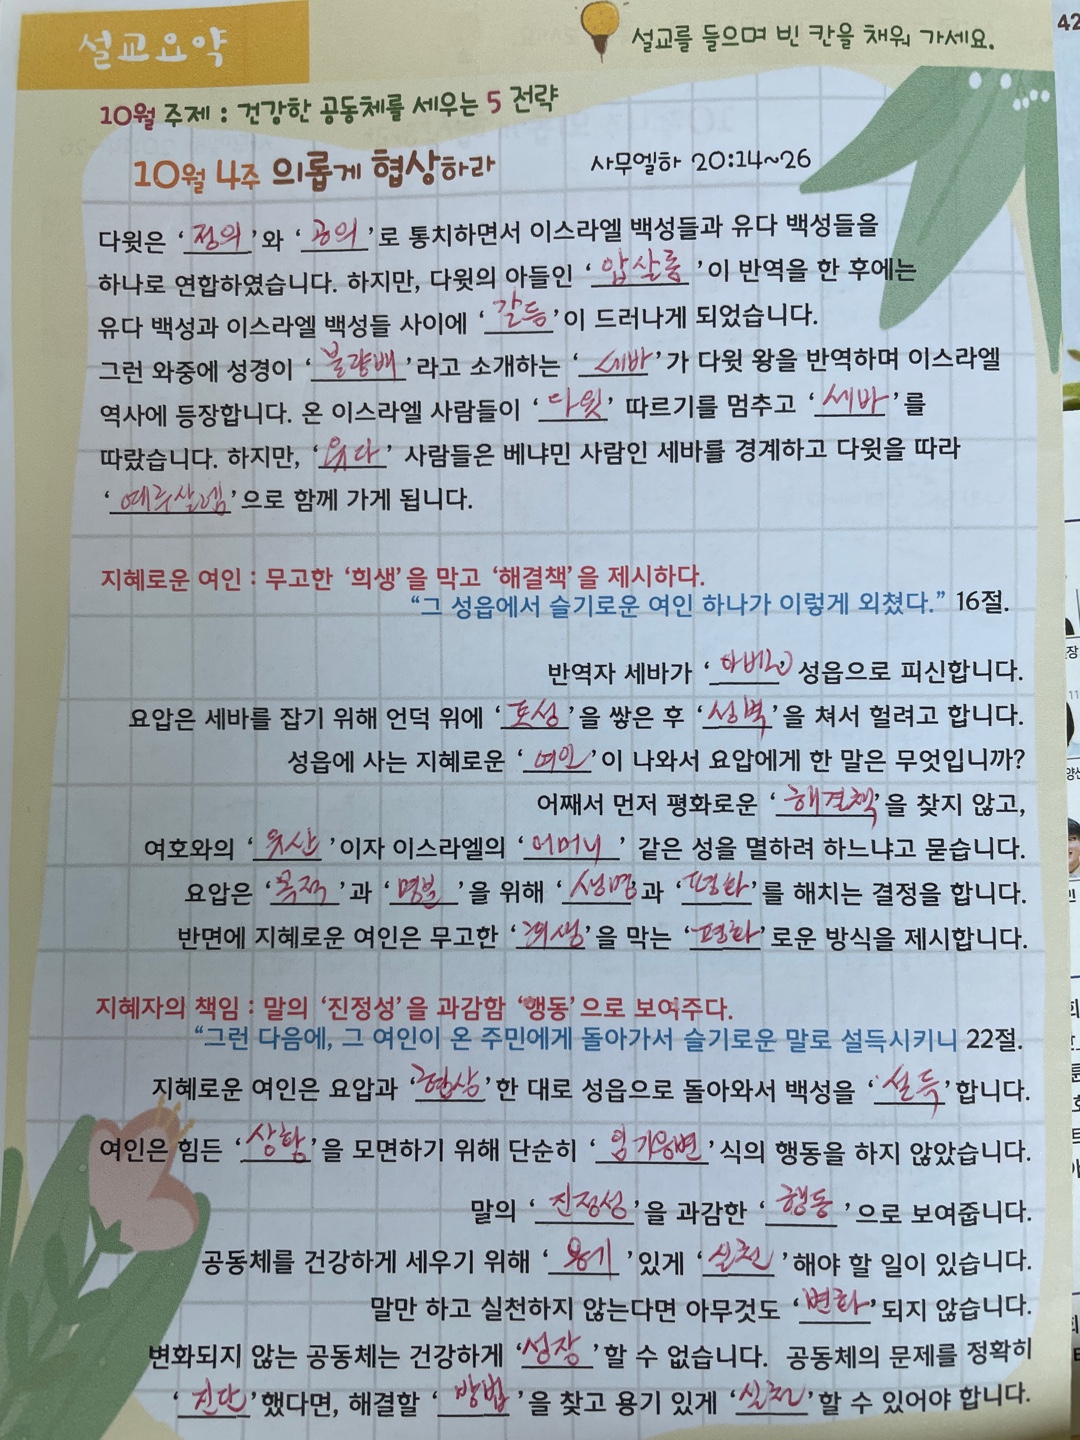 설교요약
설교를 들으며 빈 칸을 채워 가세요.
42
10월 주제 : 건강한 공동체를 세우는 5 전략
10월 4주 의롭게 협상하라 사무엘하 20:14~26
다윗은 ‘정의’와 ‘공의’로 통치하면서 이스라엘 백성들과 유다 백성들을
하나로 연합하였습니다. 하지만, 다윗의 아들인 ‘압살롬’이 반역을 한 후에는
유다 백성과 이스라엘 백성들 사이에 ‘갈등’이 드러나게 되었습니다.
그런 와중에 성경이 ‘불량배’라고 소개하는 ‘세바’가 다윗 왕을 반역하며 이스라엘
역사에 등장합니다. 온 이스라엘 사람들이 ‘다윗’ 따르기를 멈추고 ‘세바’를
따랐습니다. 하지만, ‘유다’ 사람들은 베냐민 사람인 세바를 경계하고 다윗을 따라
‘예루살렘’으로 함께 가게 됩니다.
지혜로운 여인 : 무고한 ‘희생’을 막고 ‘해결책’을 제시하다.
“그 성읍에서 슬기로운 여인 하나가 이렇게 외쳤다.” 16절.
반역자 세바가 ‘아벨’ 성읍으로 피신합니다.
요압은 세바를 잡기 위해 언덕 위에 ‘토성’을 쌓은 후 ‘성벽’을 쳐서 헐려고 합니다.
성읍에 사는 지혜로운 ‘여인’이 나와서 요압에게 한 말은 무엇입니까?
어째서 먼저 평화로운 ‘해결책’을 찾지 않고,
여호와의 ‘유산’이자 이스라엘의 ‘어머니’ 같은 성을 멸하려 하느냐고 묻습니다.
요압은 ‘목적’과 ‘명분’을 위해 ‘생명’과 ‘평화’를 해치는 결정을 합니다.
반면에 지혜로운 여인은 무고한 ‘희생’을 막는 ‘평화’로운 방식을 제시합니다.
지혜자의 책임 : 말의 ‘진정성’을 과감함 ‘행동’으로 보여주다.
“그런 다음에, 그 여인이 온 주민에게 돌아가서 슬기로운 말로 설득시키니 22절.
지혜로운 여인은 요압과 ‘협상’한 대로 성읍으로 돌아와서 백성을 ‘설득’합니다.
여인은 힘든 ‘상황’을 모면하기 위해 단순히 ‘임기응변’식의 행동을 하지 않았습니다.
말의 ‘진정성’을 과감한 ‘행동’으로 보여줍니다.
공동체를 건강하게 세우기 위해 ‘용기’있게 ‘실천’해야 할 일이 있습니다.
말만 하고 실천하지 않는다면 아무것도 ‘변화’되지 않습니다.
변화되지 않는 공동체는 건강하게 ‘성장’할 수 없습니다. 공동체의 문제를 정확히
‘진단’했다면, 해결할 ‘방법’을 찾고 용기 있게 ‘실천’할 수 있어야 합니다.